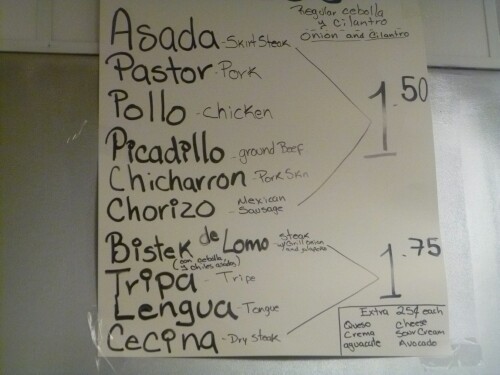 Regular cebolla
y cilantro
onion and cilantro
Asada - Skirt Steak
Pastor - Pork
Pollo - chicken
1.50
Picadillo - ground Beef
Chicharron - Pork Skin
Chorizo - Mexican
Sausage
Bistek de Lomo - Steak
w/Grill onion
and jalapeño
(con cebolla
y chiles asados)
Tripa - Tripe
1.75
Lengua - Tongue
Cecina - Dry Steak
Extra 25¢ each
Queso Cheese
Crema Sour Cream
aguacate Avocado